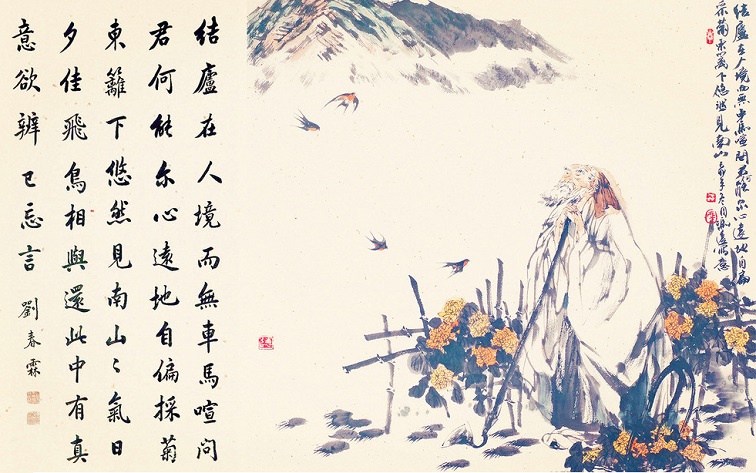 结廬在人境而無車馬喧問君能尔心遠地自偏
采菊東籬下悠然見南山
结廬在人境而無車馬喧問
君何能尔心遠地自偏採菊
東籬下悠然見南山々氣日
夕佳飛鳥相與還此中有真
意欲辨已忘言
劉春霖